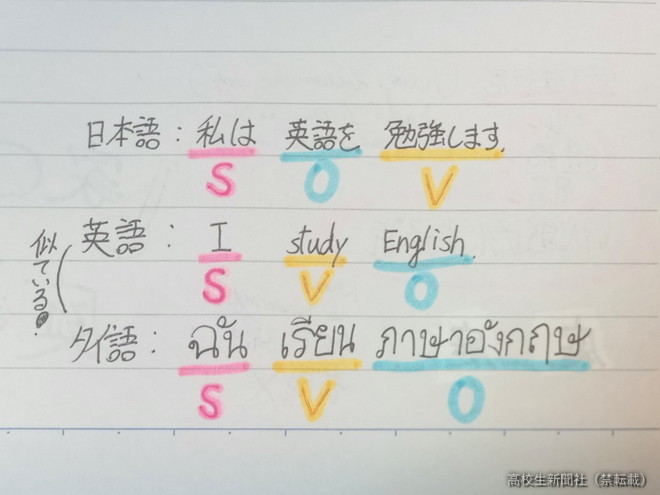 日本語: 私は 英語を 勉強します.
S O V
英語: I study English.
S V O
似ている!
タイ語: ฉัน เรียน ภาษาอังกฤษ
S V O
高校生新聞社（禁転載）